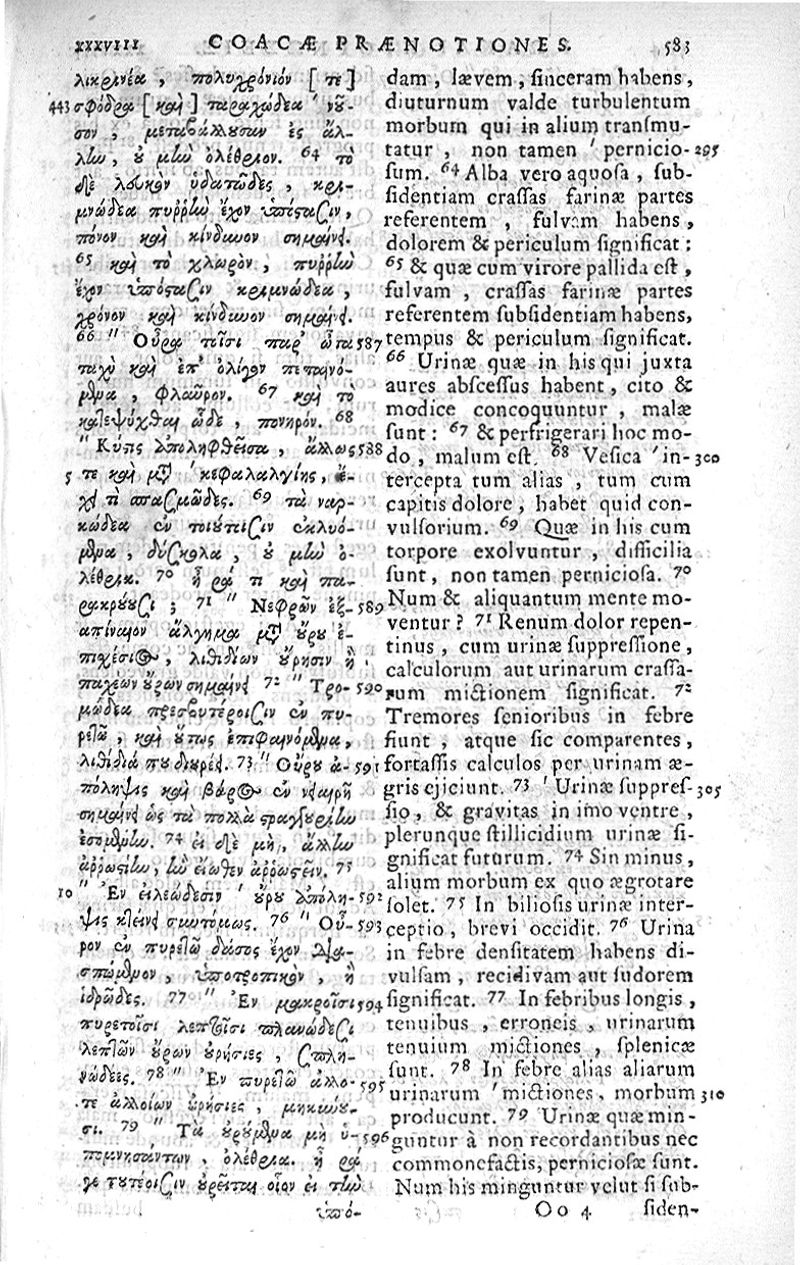 XXXVIII COACÆ PRÆNOTIONES. 583
λικρινέα, πολυχρόνιόν [τε]
443 σφόδρα [καὶ] ταραχώδεα ' νοῦ-
σον, μεταβάλλουσαν ἐς ἄλ-
λην, οὐ μὴν ὀλέθριον. 64 τὸ
δὲ λευκὸν ὑδατῶδες, κρι-
μνώδεα πυῤῥὴν ἔχον ὑπόστασιν,
πόνον καὶ κίνδυνον σημαίνει.
65 καὶ τὸ χλωρὸν, πυῤῥὴν
ἔχον ὑπόστασιν κριμνώδεα,
χρόνον καὶ κίνδυνον σημαίνει.
66 " Οὖρα τοῖσι παρ' ὦτα 587
ταχὺ καὶ ἐπ' ὀλίγον πεπαινό-
μενα, φλαῦρον. 67 καὶ τὸ
καταψύχθαι ὧδε, πονηρόν. 68
" Κύστις ἀποληφθεῖσα, ἄλλως 588
5 τε καὶ μετὰ ' κεφαλαλγίης, ἔ-
χει τι σπασμῶδες. 69 τὰ ναρ-
κώδεα ἐν τουτέοισιν ἐκλυό-
μενα, δύσκολα, οὐ μὴν ὀ-
λέθρια. 70 ἦ ῥά τι καὶ πα-
ρακρούουσι; 71 " Νεφρῶν ἐξ- 589
απίναιον ἄλγημα μετὰ οὔρου ἐ-
πισχέσιος, λιθιδίων οὔρησιν ἢ
παχέων οὔρων σημαίνει. 72 " Τρο- 590
μώδεα πρεσβυτέροισιν ἐν πυ-
ρετῷ, καὶ οὕτως ἐπιφαινόμενα,
λιθίδια που διουρέει. 73 " Οὔρου ἀ- 591
πόληψις καὶ βάρος ἐν νειαίρῃ
σημαίνει ὡς τὰ πολλὰ στραγγουρίην
ἐσομένην. 74 εἰ δὲ μὴ, ἄλλην
ἀῤῥωστίην, ἣν εἴωθεν ἀῤῥωστεῖν. 75
10 " Ἐν εἰλεώδεσιν ' οὔρου ἀπόλη- 592
ψις κτείνει συντόμως. 76 " Οὖ- 593
ρον ἐν πυρετῷ δάσος ἔχον δια-
σπώμενον, ὑποτροπικὸν, ἢ
ἱδρῶδες. 77 " Ἐν μακροῖσι 594
πυρετοῖσι λεπτοῖσι πλανώδεσι
λεπτῶν οὔρων οὐρήσιες, σπλη-
νώδεες. 78 " Ἐν πυρετῷ ἄλλο- 595
τε ἀλλοίων οὐρήσιες, μηκύνου-
σι. 79 " Τὰ οὐρούμενα μὴ ὑ- 596
πομνησάντων, ὀλέθρια. ἦ ῥά
γε τουτέοισιν οὐρεῖται οἷον εἰ τὴν
ὑπό-
dam, lævem, sinceram habens,
diuturnum valde turbulentum
morbum qui in alium transmu-
tatur, non tamen ' pernicio- 295
sum. 64 Alba vero aquosa, sub-
sidentiam crassas farinæ partes
referentem, fulvam habens,
dolorem & periculum significat:
65 & quæ cum virore pallida est,
fulvam, crassas farinæ partes
referentem subsidentiam habens,
tempus & periculum significat.
66 Urinæ quæ in his qui juxta
aures abscessus habent, cito &
modice concoquuntur, malæ
sunt: 67 & perfrigerari hoc mo-
do, malum est. 68 Vesica ' in- 300
tercepta tum alias, tum cum
capitis dolore, habet quid con-
vulsorium. 69 Quæ in his cum
torpore exolvuntur, difficilia
sunt, non tamen perniciosa. 70
Num & aliquantum mente mo-
ventur? 71 Renum dolor repen-
tinus, cum urinæ suppressione,
calculorum aut urinarum crassa-
rum mictionem significat. 72
Tremores senioribus in febre
fiunt, atque sic comparentes,
fortassis calculos per urinam æ-
gris ejiciunt. 73 ' Urinæ suppres- 305
sio, & gravitas in imo ventre,
plerunque stillicidium urinæ si-
gnificat futurum. 74 Sin minus,
alium morbum ex quo ægrotare
solet. 75 In biliosis urinæ inter-
ceptio, brevi occidit. 76 Urina
in febre densitatem habens di-
vulsam, recidivam aut sudorem
significat. 77 In febribus longis,
tenuibus, erroneis, urinarum
tenuium mictiones, splenicæ
sunt. 78 In febre alias aliarum
urinarum ' mictiones, morbum 310
producunt. 79 Urinæ quæ min-
guntur à non recordantibus nec
commonefactis, perniciosæ sunt.
Num his minguntur velut si sub-
Oo 4 siden-